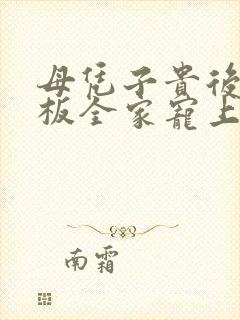 母凭子貴後
板全家寵上
南霜